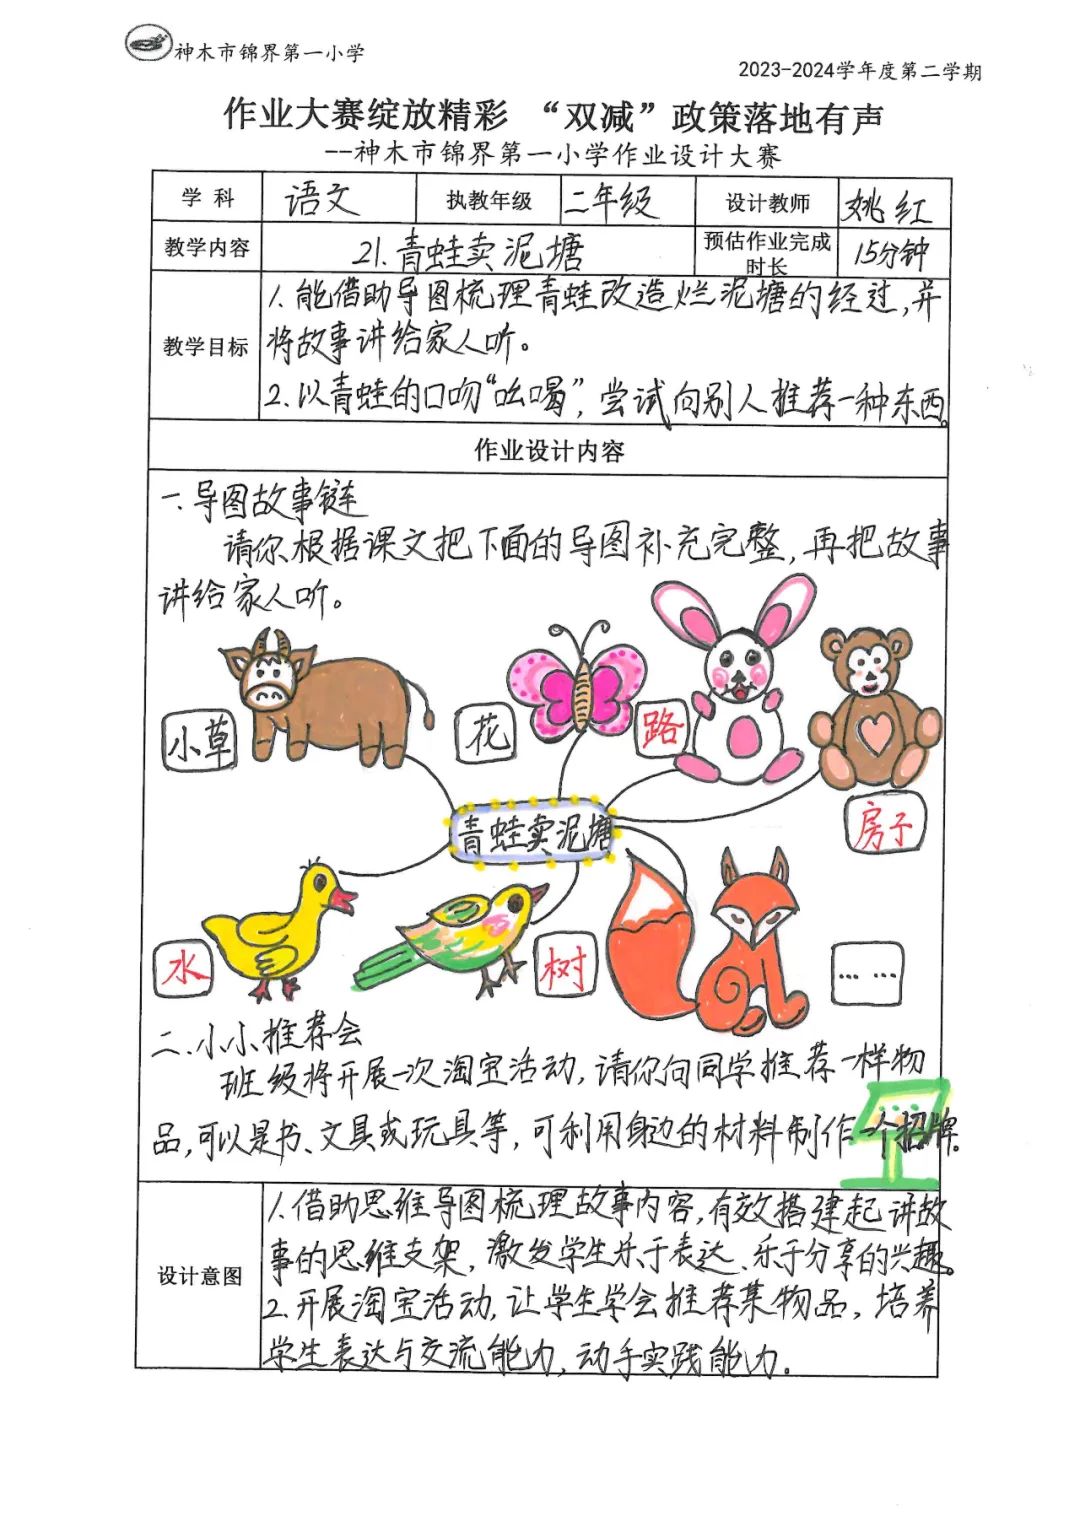 神木市锦界第一小学
2023-2024学年度第二学期
作业大赛绽放精彩 “双减”政策落地有声
--神木市锦界第一小学作业设计大赛
学科 语文 执教年级 二年级 设计教师 姚红
教学内容 21.青蛙卖泥塘 预估作业完成时长 15分钟
教学目标
1.能借助导图梳理青蛙改造烂泥塘的经过,并
将故事讲给家人听。
2.以青蛙的口吻“吆喝”,尝试向别人推荐一种东西。
作业设计内容
一.导图故事链
请你根据课文把下面的导图补充完整,再把故事
讲给家人听。
小草
花
路
房子
青蛙卖泥塘
水
树
……
二.小小推荐会
班级将开展一次淘宝活动,请你向同学推荐一样物
品,可以是书、文具或玩具等,可利用身边的材料制作一个招牌。
设计意图
1.借助思维导图梳理故事内容,有效搭建起讲故
事的思维支架,激发学生乐于表达、乐于分享的兴趣。
2.开展淘宝活动,让学生学会推荐某物品,培养
学生表达与交流能力,动手实践能力.